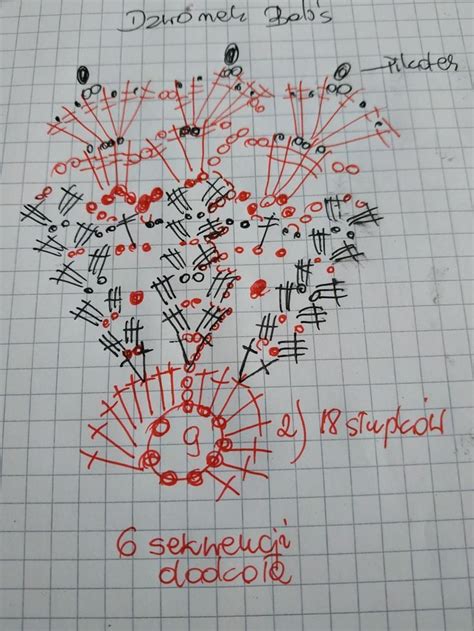 Dzwonek Bob's
Pikotek
9
2) 18 słupków
6 sekwencji
dookoła